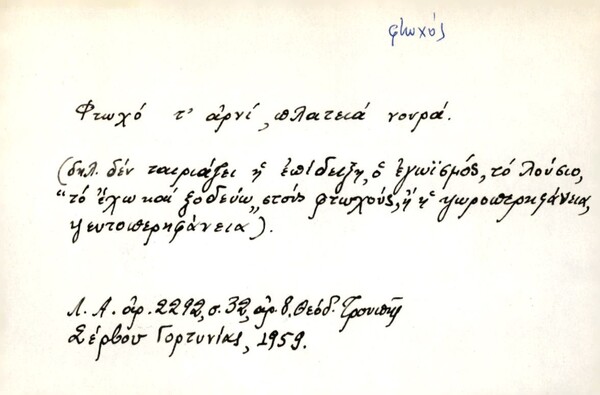 φτωχός
Φτωχό τ' ἀρνί, πλατειά νουρά.
(δηλ. δέν ταιριάζει ἡ ἐπίδειξη, ὁ ἐγωϊσμός, τό λούσιο,
"τό ἔχω καί ξοδεύω„ στούς φτωχούς, ἤ ἡ ψωροπερηφάνεια,
ψευτοπερηφάνεια).
Λ. Α. ἀρ. 2292, σ. 32, ἀρ. 8. Θεόδ. Τρουπῆς
Σέρβου Γορτυνίας, 1959.